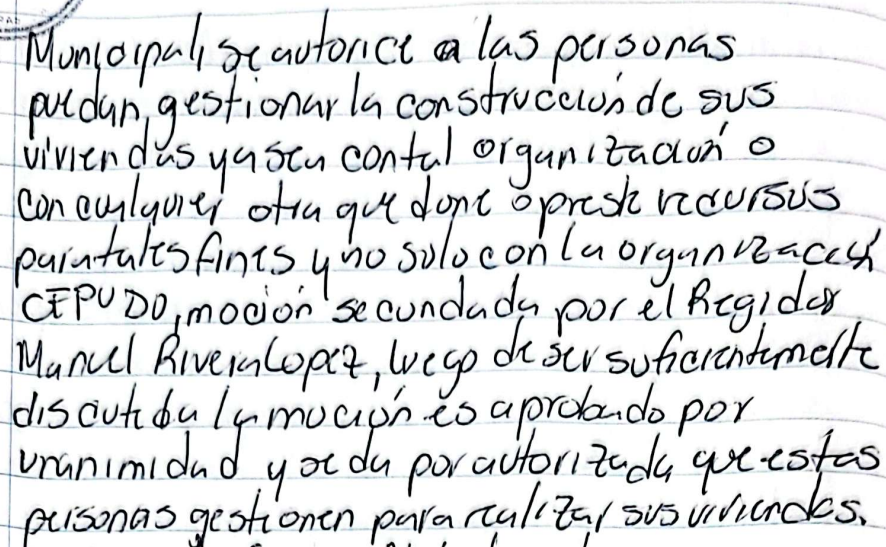 Municipal, se autorice a las personas
puedan, gestionar la construcción de sus
viviendas ya sea con tal organización o
con cualquier otra que done o preste recursos
para tales fines y no solo con la organización
CEPUDO, moción secundada por el Regidor
Manuel Rivera Lopez, luego de ser suficientemente
discutida la moción es aprobado por
unanimidad y se da por autorizada que estas
personas gestionen para realizar sus viviendas.